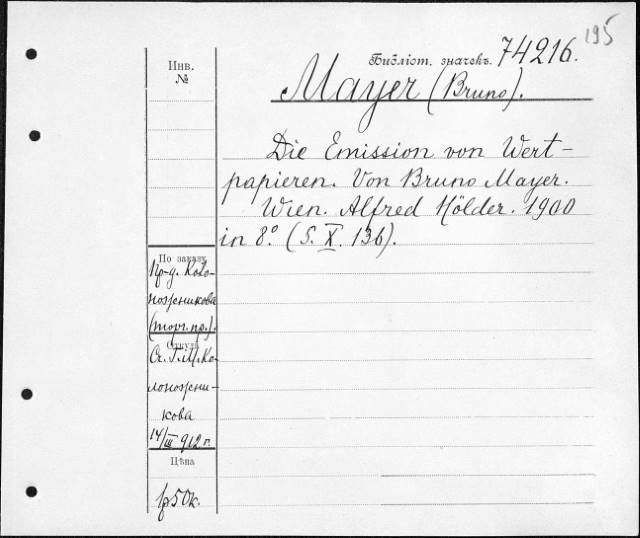 195
Библіот. значекъ. 74216.
Mayer (Bruno).
Die Emission von Wert-
papieren. Von Bruno Mayer.
Wien. Alfred Hölder. 1900
in 8.° (S. X. 136).
Инв.
№
По заказу
Пр-д. Коло-
ножникова
(торг. пр.).
Откуда
Ск. Г. М. Ко-
лоножни-
кова
14/III 912 г.
Цѣна
1р50к.